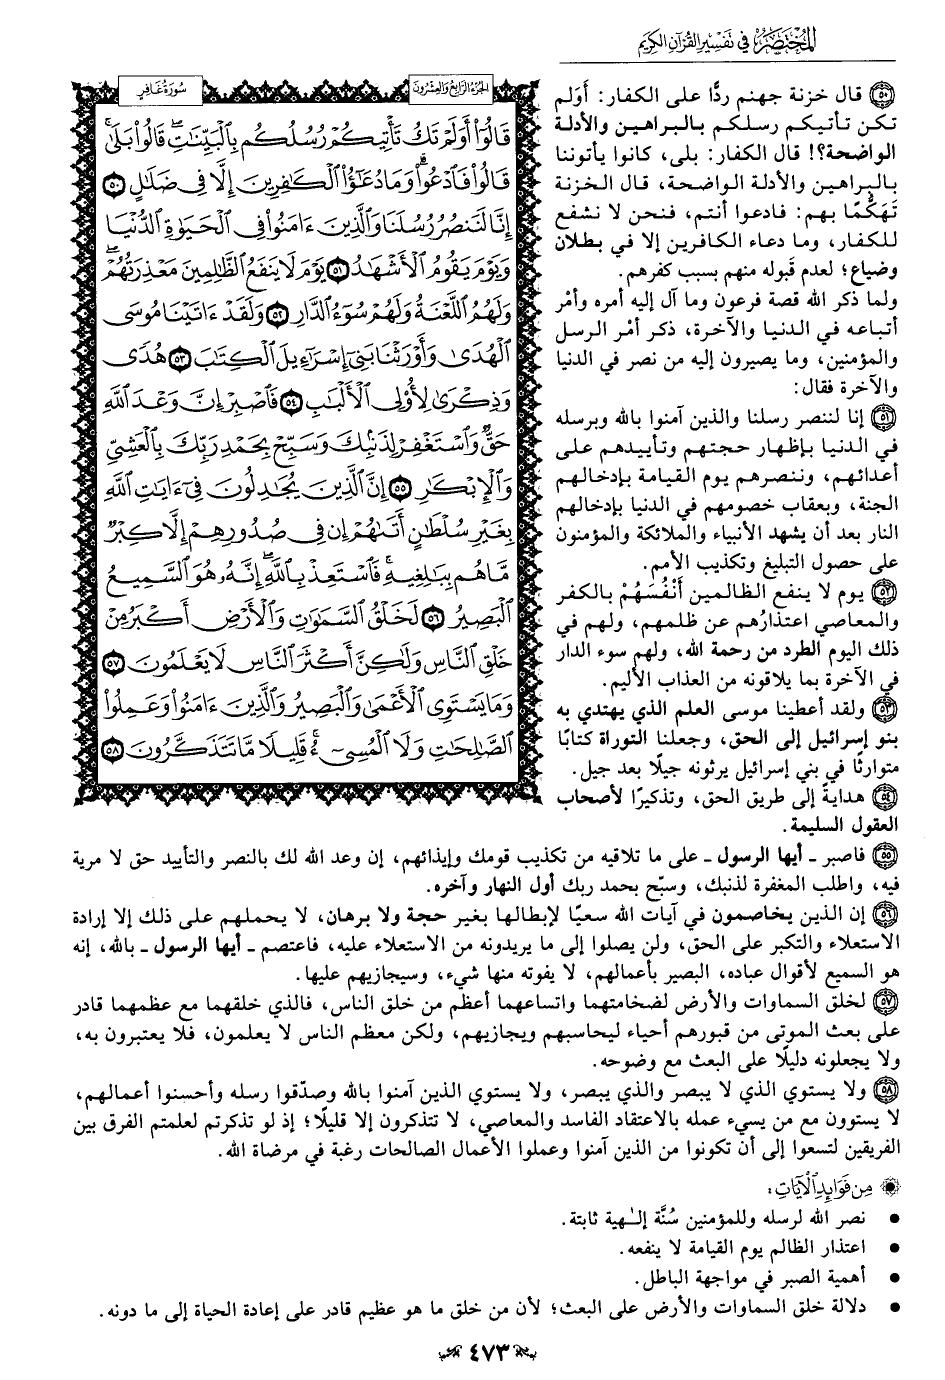 المختصر في تفسير القرآن الكريم
الجزء الرابع والعشرون
سورة غافر
قَالُوٓاْ أَوَلَمۡ تَكُ تَأۡتِيكُمۡ رُسُلُكُم بِٱلۡبَيِّنَٰتِۖ قَالُواْ بَلَىٰۚ
قَالُواْ فَٱدۡعُواْۗ وَمَا دُعَٰٓؤُاْ ٱلۡكَٰفِرِينَ إِلَّا فِي ضَلَٰلٍ ٥٠
إِنَّا لَنَنصُرُ رُسُلَنَا وَٱلَّذِينَ ءَامَنُواْ فِي ٱلۡحَيَوٰةِ ٱلدُّنۡيَا
وَيَوۡمَ يَقُومُ ٱلۡأَشۡهَٰدُ ٥١ يَوۡمَ لَا يَنفَعُ ٱلظَّٰلِمِينَ مَعۡذِرَتُهُمۡۖ
وَلَهُمُ ٱللَّعۡنَةُ وَلَهُمۡ سُوٓءُ ٱلدَّارِ ٥٢ وَلَقَدۡ ءَاتَيۡنَا مُوسَى
ٱلۡهُدَىٰ وَأَوۡرَثۡنَا بَنِيٓ إِسۡرَٰٓءِيلَ ٱلۡكِتَٰبَ ٥٣ هُدٗى
وَذِكۡرَىٰ لِأُوْلِي ٱلۡأَلۡبَٰبِ ٥٤ فَٱصۡبِرۡ إِنَّ وَعۡدَ ٱللَّهِ
حَقّٞ وَٱسۡتَغۡفِرۡ لِذَنۢبِكَ وَسَبِّحۡ بِحَمۡدِ رَبِّكَ بِٱلۡعَشِيِّ
وَٱلۡإِبۡكَٰرِ ٥٥ إِنَّ ٱلَّذِينَ يُجَٰدِلُونَ فِيٓ ءَايَٰتِ ٱللَّهِ
بِغَيۡرِ سُلۡطَٰنٍ أَتَىٰهُمۡ إِن فِي صُدُورِهِمۡ إِلَّا كِبۡرٞ
مَّا هُم بِبَٰلِغِيهِۚ فَٱسۡتَعِذۡ بِٱللَّهِۖ إِنَّهُۥ هُوَ ٱلسَّمِيعُ
ٱلۡبَصِيرُ ٥٦ لَخَلۡقُ ٱلسَّمَٰوَٰتِ وَٱلۡأَرۡضِ أَكۡبَرُ مِنۡ
خَلۡقِ ٱلنَّاسِ وَلَٰكِنَّ أَكۡثَرَ ٱلنَّاسِ لَا يَعۡلَمُونَ ٥٧
وَمَا يَسۡتَوِي ٱلۡأَعۡمَىٰ وَٱلۡبَصِيرُ وَٱلَّذِينَ ءَامَنُواْ وَعَمِلُواْ
ٱلصَّٰلِحَٰتِ وَلَا ٱلۡمُسِيٓءُۚ قَلِيلٗا مَّا تَتَذَكَّرُونَ ٥٨
٥٠ قال خزنة جهنم ردًّا على الكفار: أَوَلم
تكن تأتيكم رسلكم بالبراهين والأدلة
الواضحة؟! قال الكفار: بلى، كانوا يأتوننا
بالبراهين والأدلة الواضحة، قال الخزنة
تَهَكُّمًا بهم: فادعوا أنتم، فنحن لا نشفع
للكفار، وما دعاء الكافرين إلا في بطلان
وضياع؛ لعدم قَبوله منهم بسبب كفرهم.
ولما ذكر الله قصة فرعون وما آل إليه أمره وأمْر
أتباعه في الدنيا والآخرة، ذكر أمْر الرسل
والمؤمنين، وما يصيرون إليه من نصر في الدنيا
والآخرة فقال:
٥١ إنا لننصر رسلنا والذين آمنوا بالله وبرسله
في الدنيا بإظهار حجتهم وتأييدهم على
أعدائهم، وننصرهم يوم القيامة بإدخالهم
الجنة، وبعقاب خصومهم في الدنيا بإدخالهم
النار بعد أن يشهد الأنبياء والملائكة والمؤمنون
على حصول التبليغ وتكذيب الأمم.
٥٢ يوم لا ينفع الظالمين أَنْفُسَهُمْ بالكفر
والمعاصي اعتذارُهم عن ظلمهم، ولهم في
ذلك اليوم الطرد من رحمة الله، ولهم سوء الدار
في الآخرة بما يلاقونه من العذاب الأليم.
٥٣ ولقد أعطينا موسى العلم الذي يهتدي به
بنو إسرائيل إلى الحق، وجعلنا التوراة كتابًا
متوارثًا في بني إسرائيل يرثونه جيلًا بعد جيل.
٥٤ هدايةً إلى طريق الحق، وتذكيرًا لأصحاب
العقول السليمة.
٥٥ فاصبر ـ أيها الرسول ـ على ما تلاقيه من تكذيب قومك وإيذائهم، إن وعد الله لك بالنصر والتأييد حق لا مرية
فيه، واطلب المغفرة لذنبك، وسبّح بحمد ربك أول النهار وآخره.
٥٦ إن الذين يخاصمون في آيات الله سعيًا لإبطالها بغير حجة ولا برهان، لا يحملهم على ذلك إلا إرادة
الاستعلاء والتكبر على الحق، ولن يصلوا إلى ما يريدونه من الاستعلاء عليه، فاعتصم ـ أيها الرسول ـ بالله، إنه
هو السميع لأقوال عباده، البصير بأعمالهم، لا يفوته منها شيء، وسيجازيهم عليها.
٥٧ لخلق السماوات والأرض لضخامتهما واتساعهما أعظم من خلق الناس، فالذي خلقهما مع عظمهما قادر
على بعث الموتى من قبورهم أحياء ليحاسبهم ويجازيهم، ولكن معظم الناس لا يعلمون، فلا يعتبرون به،
ولا يجعلونه دليلًا على البعث مع وضوحه.
٥٨ ولا يستوي الذي لا يبصر والذي يبصر، ولا يستوي الذين آمنوا بالله وصدّقوا رسله وأحسنوا أعمالهم،
لا يستوون مع من يسيء عمله بالاعتقاد الفاسد والمعاصي، لا تتذكرون إلا قليلًا؛ إذ لو تذكرتم لعلمتم الفرق بين
الفريقين لتسعوا إلى أن تكونوا من الذين آمنوا وعملوا الأعمال الصالحات رغبة في مرضاة الله.
من فوائد الآيات:
• نصر الله لرسله وللمؤمنين سُنَّة إلـٰهية ثابتة.
• اعتذار الظالم يوم القيامة لا ينفعه.
• أهمية الصبر في مواجهة الباطل.
• دلالة خلق السماوات والأرض على البعث؛ لأن من خلق ما هو عظيم قادر على إعادة الحياة إلى ما دونه.
٤٧٣